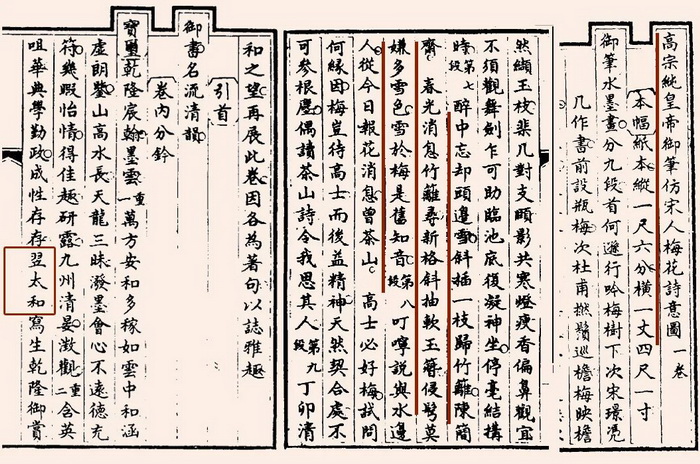 高宗純皇帝御筆仿宋人梅花詩意圖 一卷
本幅紙本縱一尺六分橫一丈四尺一寸
御筆水墨畫分九段首何遜行吟梅樹下次宋璟憑
几作書前設瓶梅次杜甫撚鬚巡檐梅映檐
然纈玉枝棐几對支頤影共寒燈瘦香偏鼻觀宜
不須觀舞劍乍可助臨池底後凝神坐停毫結構
時段 醉中忘却頭邊雪斜插一枝歸竹籬陳簡
齋 春光消息竹籬尋新格斜抽軟玉簪侵鬂莫
嫌多雪色雪於梅是舊知音第八段 叮嚀說與水邊
人從今日報花消息曾茶山 高士必好梅試問
何緣因梅豈待高士而後益精神天然契合處不
可參根塵偶讀茶山詩令我思其人第九段 丁卯清
和之望再展此卷因各為著句以誌雅趣
引首
御書名流清韻
卷內分鈐
寶璽乾隆宸翰墨雲一重萬方安和多稼如雲中和涵
虛朗鑒山高水長天龍三昧潑墨會心不遠德充
符幾暇怡情得佳趣研露九州清晏澂觀二重含英
咀華典學勤政成性存存翌太和寫生乾隆御賞